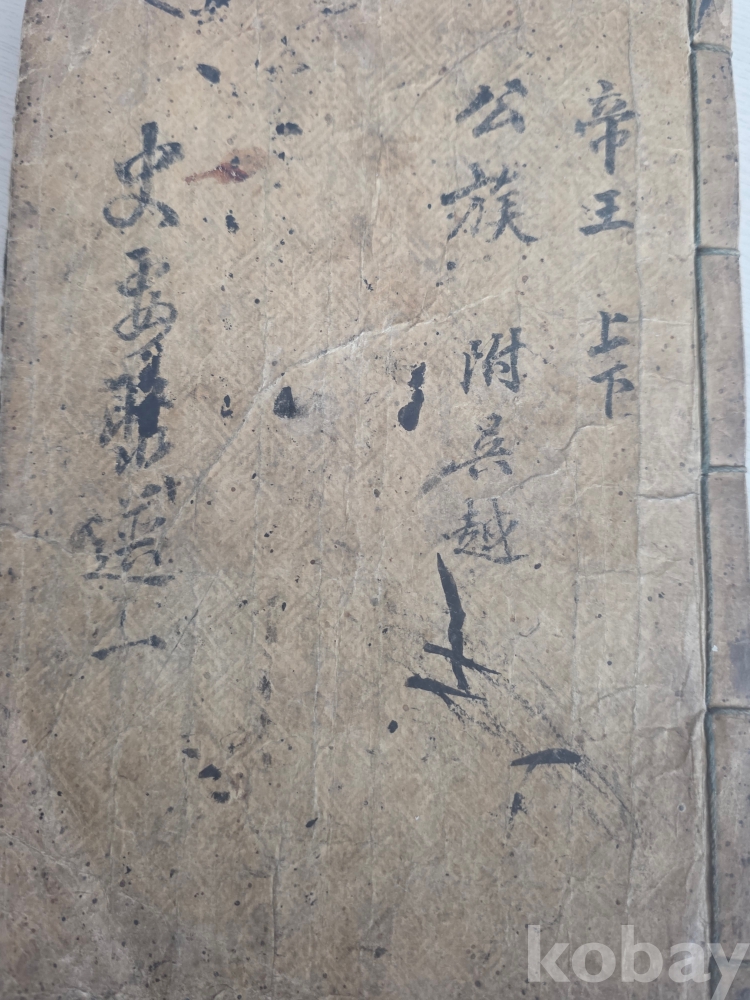 帝王 上下
公族 附吳越
史要聚選 一
kobay